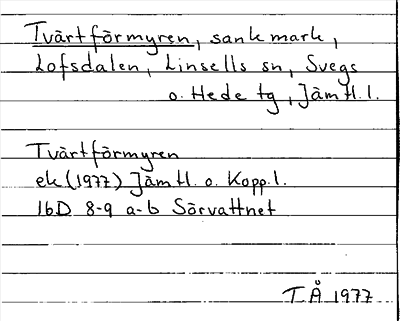 Tvärtförmyren, sank mark,
Lofsdalen, Linsells sn, Svegs
o. Hede tg, Jämtl. l.
Tvärtförmyren
ek (1977) Jämtl. o. Kopp. l.
16D 8-9 a-b Sörvattnet
T Å 1977